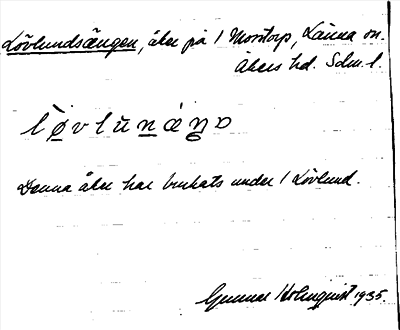 Lövlundsängen, åker på 1 Morstorp, Länna sn.
Åkers hd. Sdm. l.
lø̀vlūnǽŋə
Denna åker har brukats under 1 Lövlund.
Gunnar Holmquist 1935.